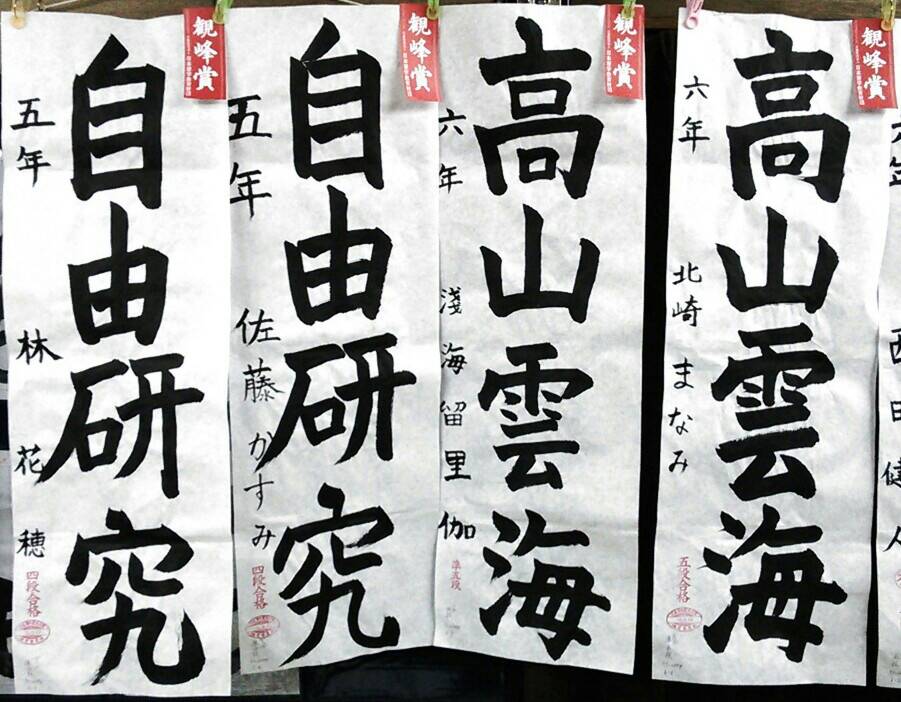 観峰賞
自由研究
五年
林花穂
四段合格
観峰賞
自由研究
五年
佐藤かすみ
四段合格
観峰賞
高山雲海
六年
淺海留里伽
準五段
観峰賞
高山雲海
六年
北崎まなみ
五段合格